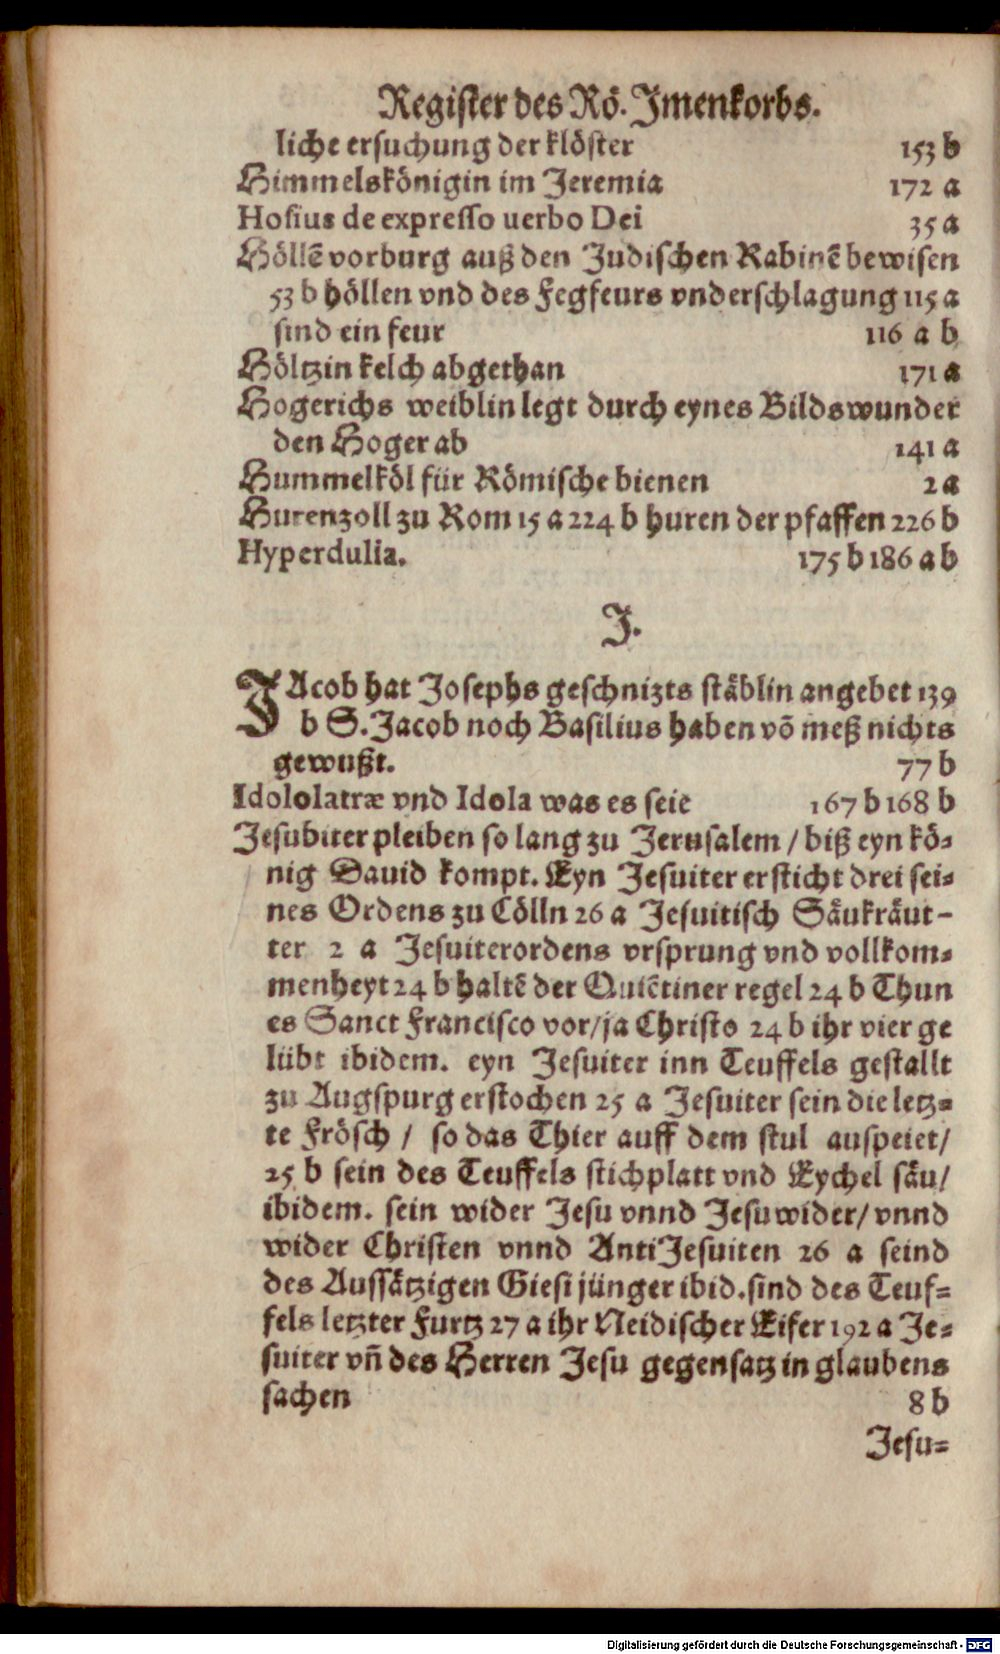 Register des Rö. Jmenkorbs.
liche ersuchung der klöster 153 b
Himmelskönigin im Jeremia 172 a
Hosius de expresso uerbo Dei 35 a
Höllẽ vorburg auß den Judischen Rabinẽ bewisen
53 b höllen vnd des Fegfeurs vnderschlagung 115 a
sind ein feur 116 a b
Höltzin kelch abgethan 171 a
Hogerichs weiblin legt durch eynes Bilds wunder
den Hoger ab 141 a
Hummelköl für Römische bienen 2 a
Hurenzoll zu Rom 15 a 224 b huren der pfaffen 226 b
Hyperdulia. 175 b 186 a b
J.
JAcob hat Josephs geschnizts stäblin angebet 139
b S. Jacob noch Basilius haben võ meß nichts
gewußt. 77 b
Idololatræ vnd Idola was es seie 167 b 168 b
Jesubiter pleiben so lang zu Jerusalem / biß eyn kö-
nig Dauid kompt. Eyn Jesuiter ersticht drei sei-
nes Ordens zu Cölln 26 a Jesuitisch Säukräut-
ter 2 a Jesuiterordens vrsprung vnd vollkom-
menheyt 24 b haltẽ der Quiẽtiner regel 24 b Thun
es Sanct Francisco vor/ja Christo 24 b ihr vier ge
lübt ibidem. eyn Jesuiter inn Teuffels gestallt
zu Augspurg erstochen 25 a Jesuiter sein die letz-
te Frösch / so das Thier auff dem stul auspeiet/
25 b sein des Teuffels stichplatt vnd Eychel säu/
ibidem. sein wider Jesu vnnd Jesuwider/ vnnd
wider Christen vnnd AntiJesuiten 26 a seind
des Aussätzigen Giesi jünger ibid. sind des Teuf-
fels letzter Furtz 27 a ihr Neidischer Eifer 192 a Je-
suiter vñ des Herren Jesu gegensatz in glaubens
sachen 8 b
Jesu-
Digitalisierung gefördert durch die Deutsche Forschungsgemeinschaft - DFG